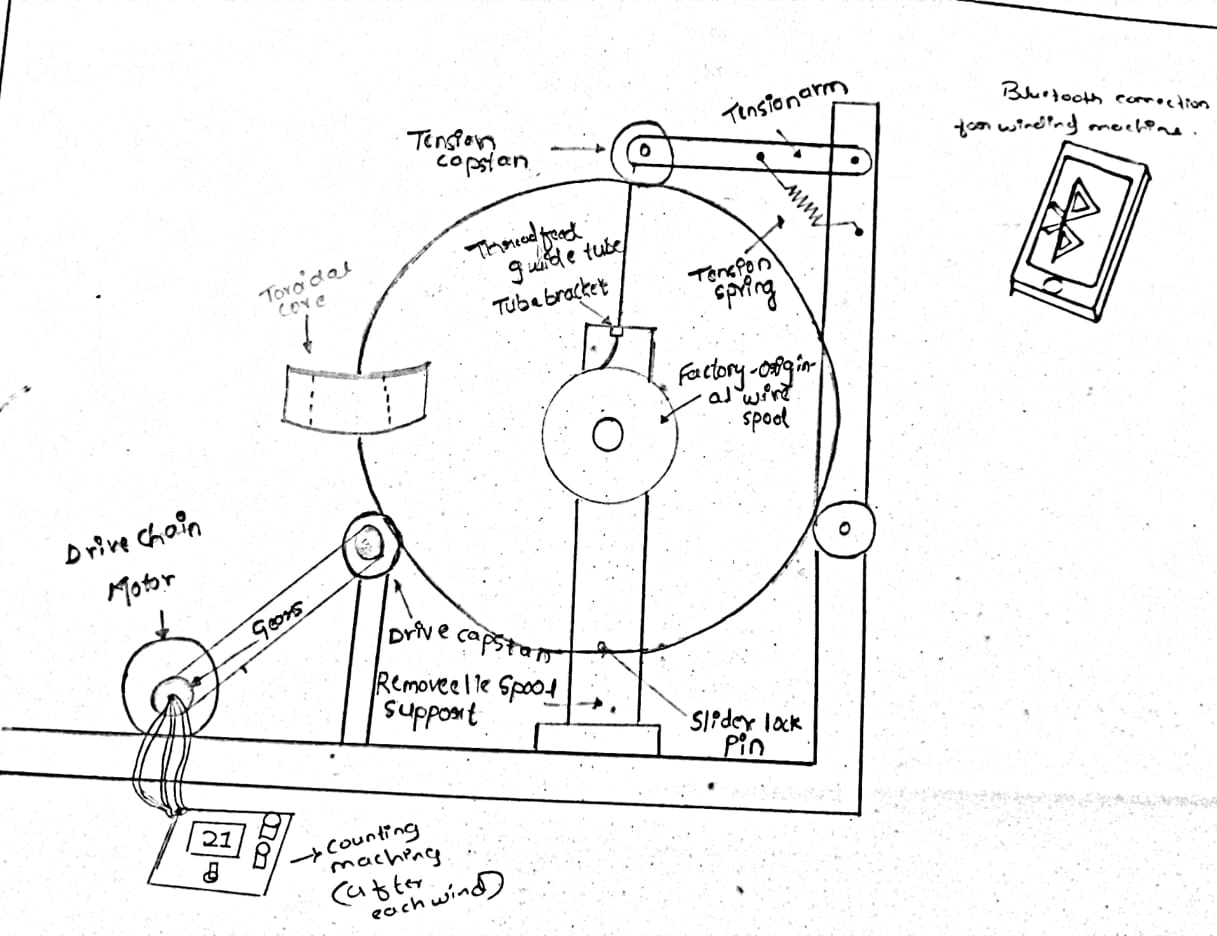 Bluetooth connection
for winding machine.
Tension arm
Tension
capstan
Thread feed
guide tube
Tube bracket
Tension
spring
Toroidal
core
Factory-origin-
al wire
spool
Drive chain
Motor
Gears
Drive capstan
Removeelle Spool
support
Slider lock
pin
21
counting
maching
(after
each wind)